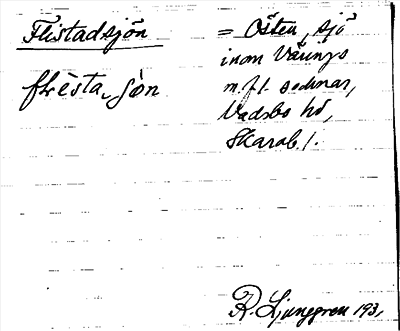 Flistadsjön = Östen, sjö
inom Värings
flèsta, ʃön m. fl. socknar,
Vadsbo hd,
Skarab. l.
R. Ljunggren 193,